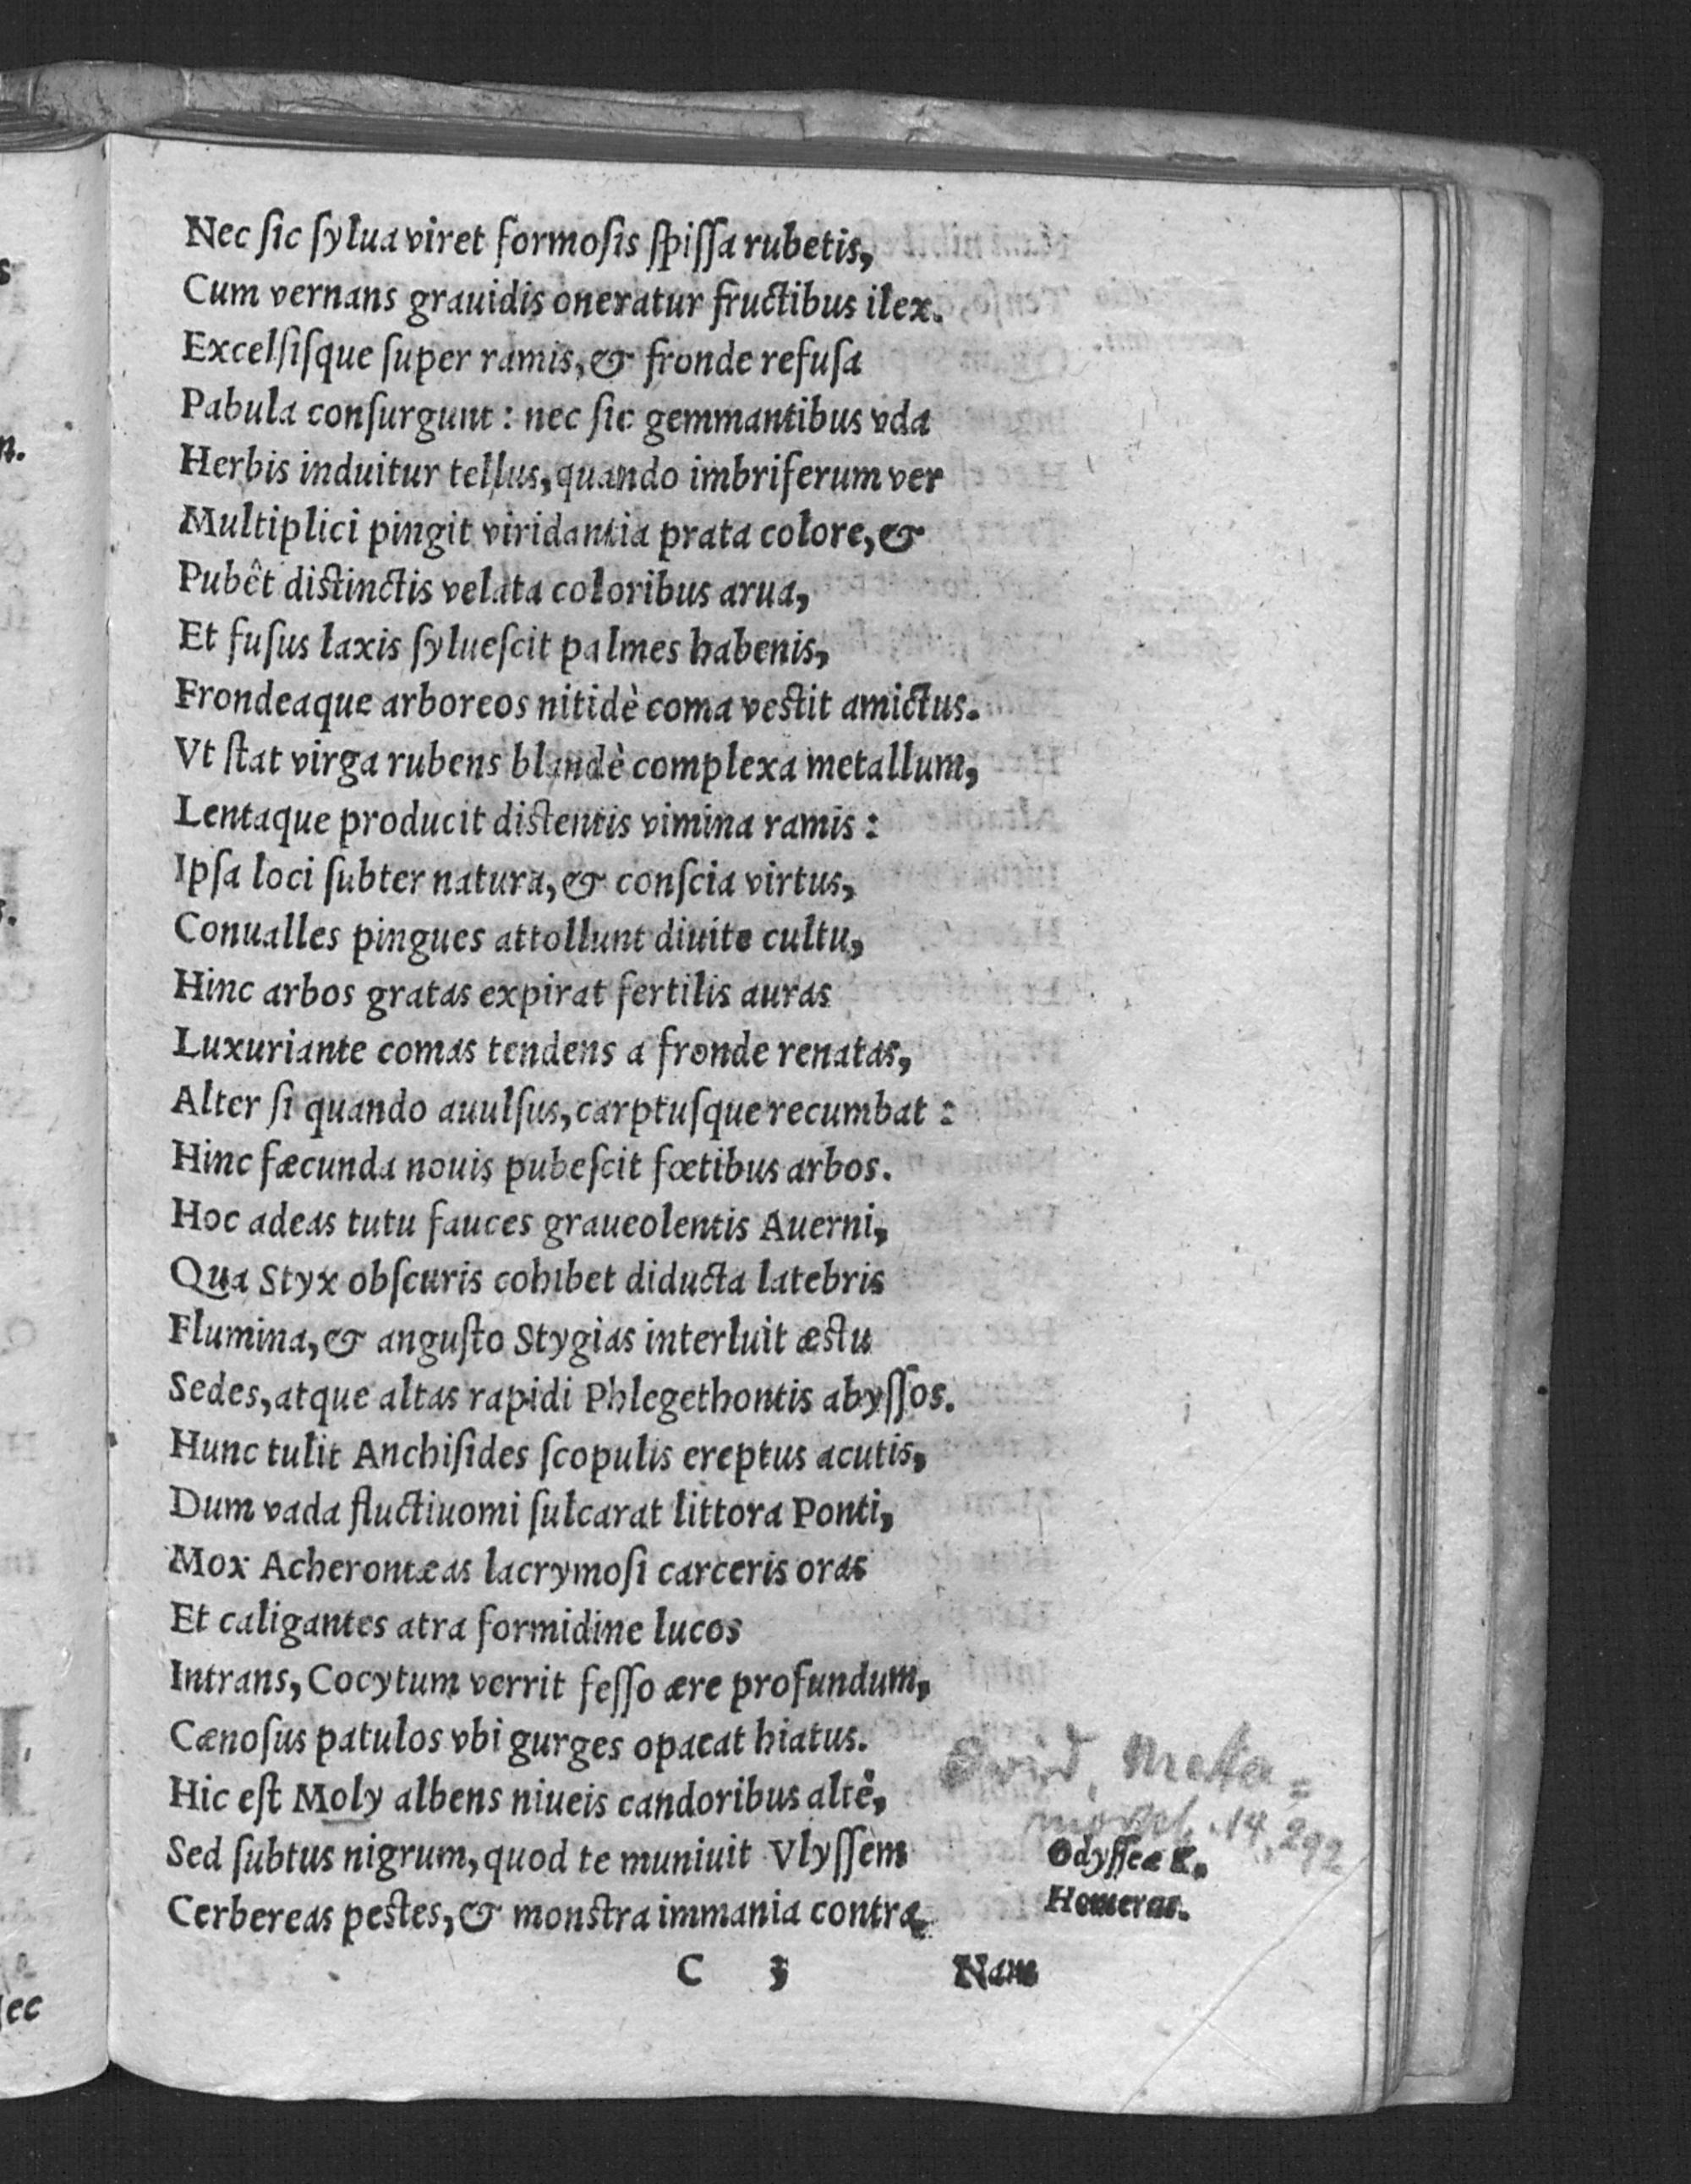 Nec ſic ſylua viret formoſis ſpiſſa rubetis,
Cum vernans grauidis oneratur fructibus ilex.
Excelſiſque ſuper ramis, & fronde refuſa
Pabula conſurgunt: nec ſic gemmantibus vda
Herbis induitur tellus, quando imbriferum ver
Multiplici pingit viridantia prata colore, &
Pubêt distinctis velata coloribus arua,
Et fuſus laxis ſylueſcit palmes habenis,
Frondeaque arboreos nitidè coma vestit amictus.
Vt ſtat virga rubens blandè complexa metallum,
Lentaque producit distentis vimina ramis:
Ipſa loci ſubter natura, & conſcia virtus,
Conualles pingues attollunt diuite cultu,
Hinc arbos gratas expirat fertilis auras
Luxuriante comas tendens a fronde renatas,
Alter ſi quando auulſus, carptuſque recumbat:
Hinc fæcunda nouis pubeſcit fœtibus arbos.
Hoc adeas tutu fauces graueolentis Auerni,
Qua Styx obſcuris cohibet diducta latebris
Flumina, & anguſto Stygias interluit æstu
Sedes, atque altas rapidi Phlegethontis abyſſos.
Hunc tulit Anchiſides ſcopulis ereptus acutis,
Dum vada fluctiuomi ſulcarat littora Ponti,
Mox Acherontæas lacrymoſi carceris oras
Et caligantes atra formidine lucos
Intrans, Cocytum verrit feſſo ære profundum,
Cænoſus patulos vbi gurges opacat hiatus.
Hic eſt Moly albens niueis candoribus altè,
Sed ſubtus nigrum, quod te muniuit Vlyſſem
Cerbereas pestes, & monstra immania contra.
Ovid. Meta=
morph. 14, 292
Odyſſeæ K.
Homerus.
C 3 Nam